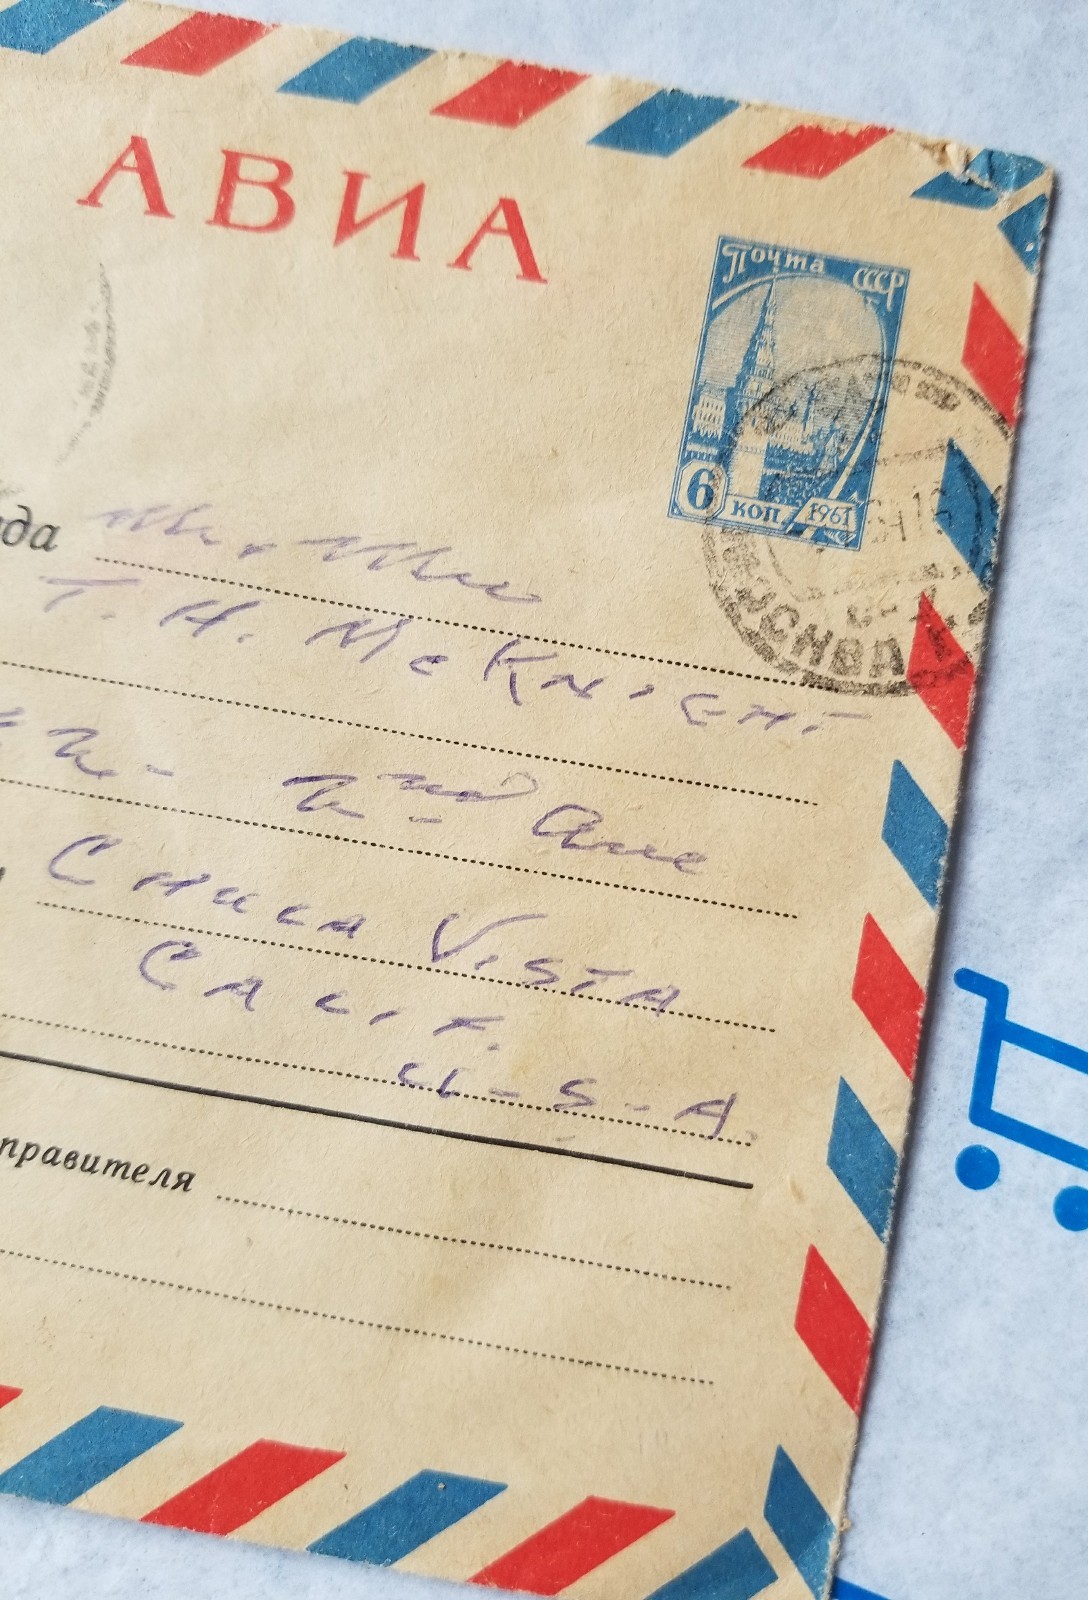 АВИА
Почта СССР
6 коп. 1961
МОСКВА
да
T. H. McKnight
2nd Ave
Chula Vista
Calif.
U-S-A.
правителя